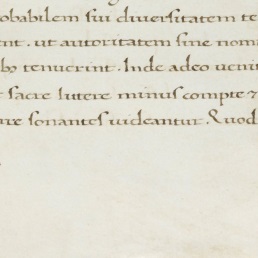 obabilem sui diversitatem te
ent. ut autoritatem sine nom
ibꝫ tenuerint. Inde adeo ueni
sacre littere minus compte &
re sonantes uideantur. Quod